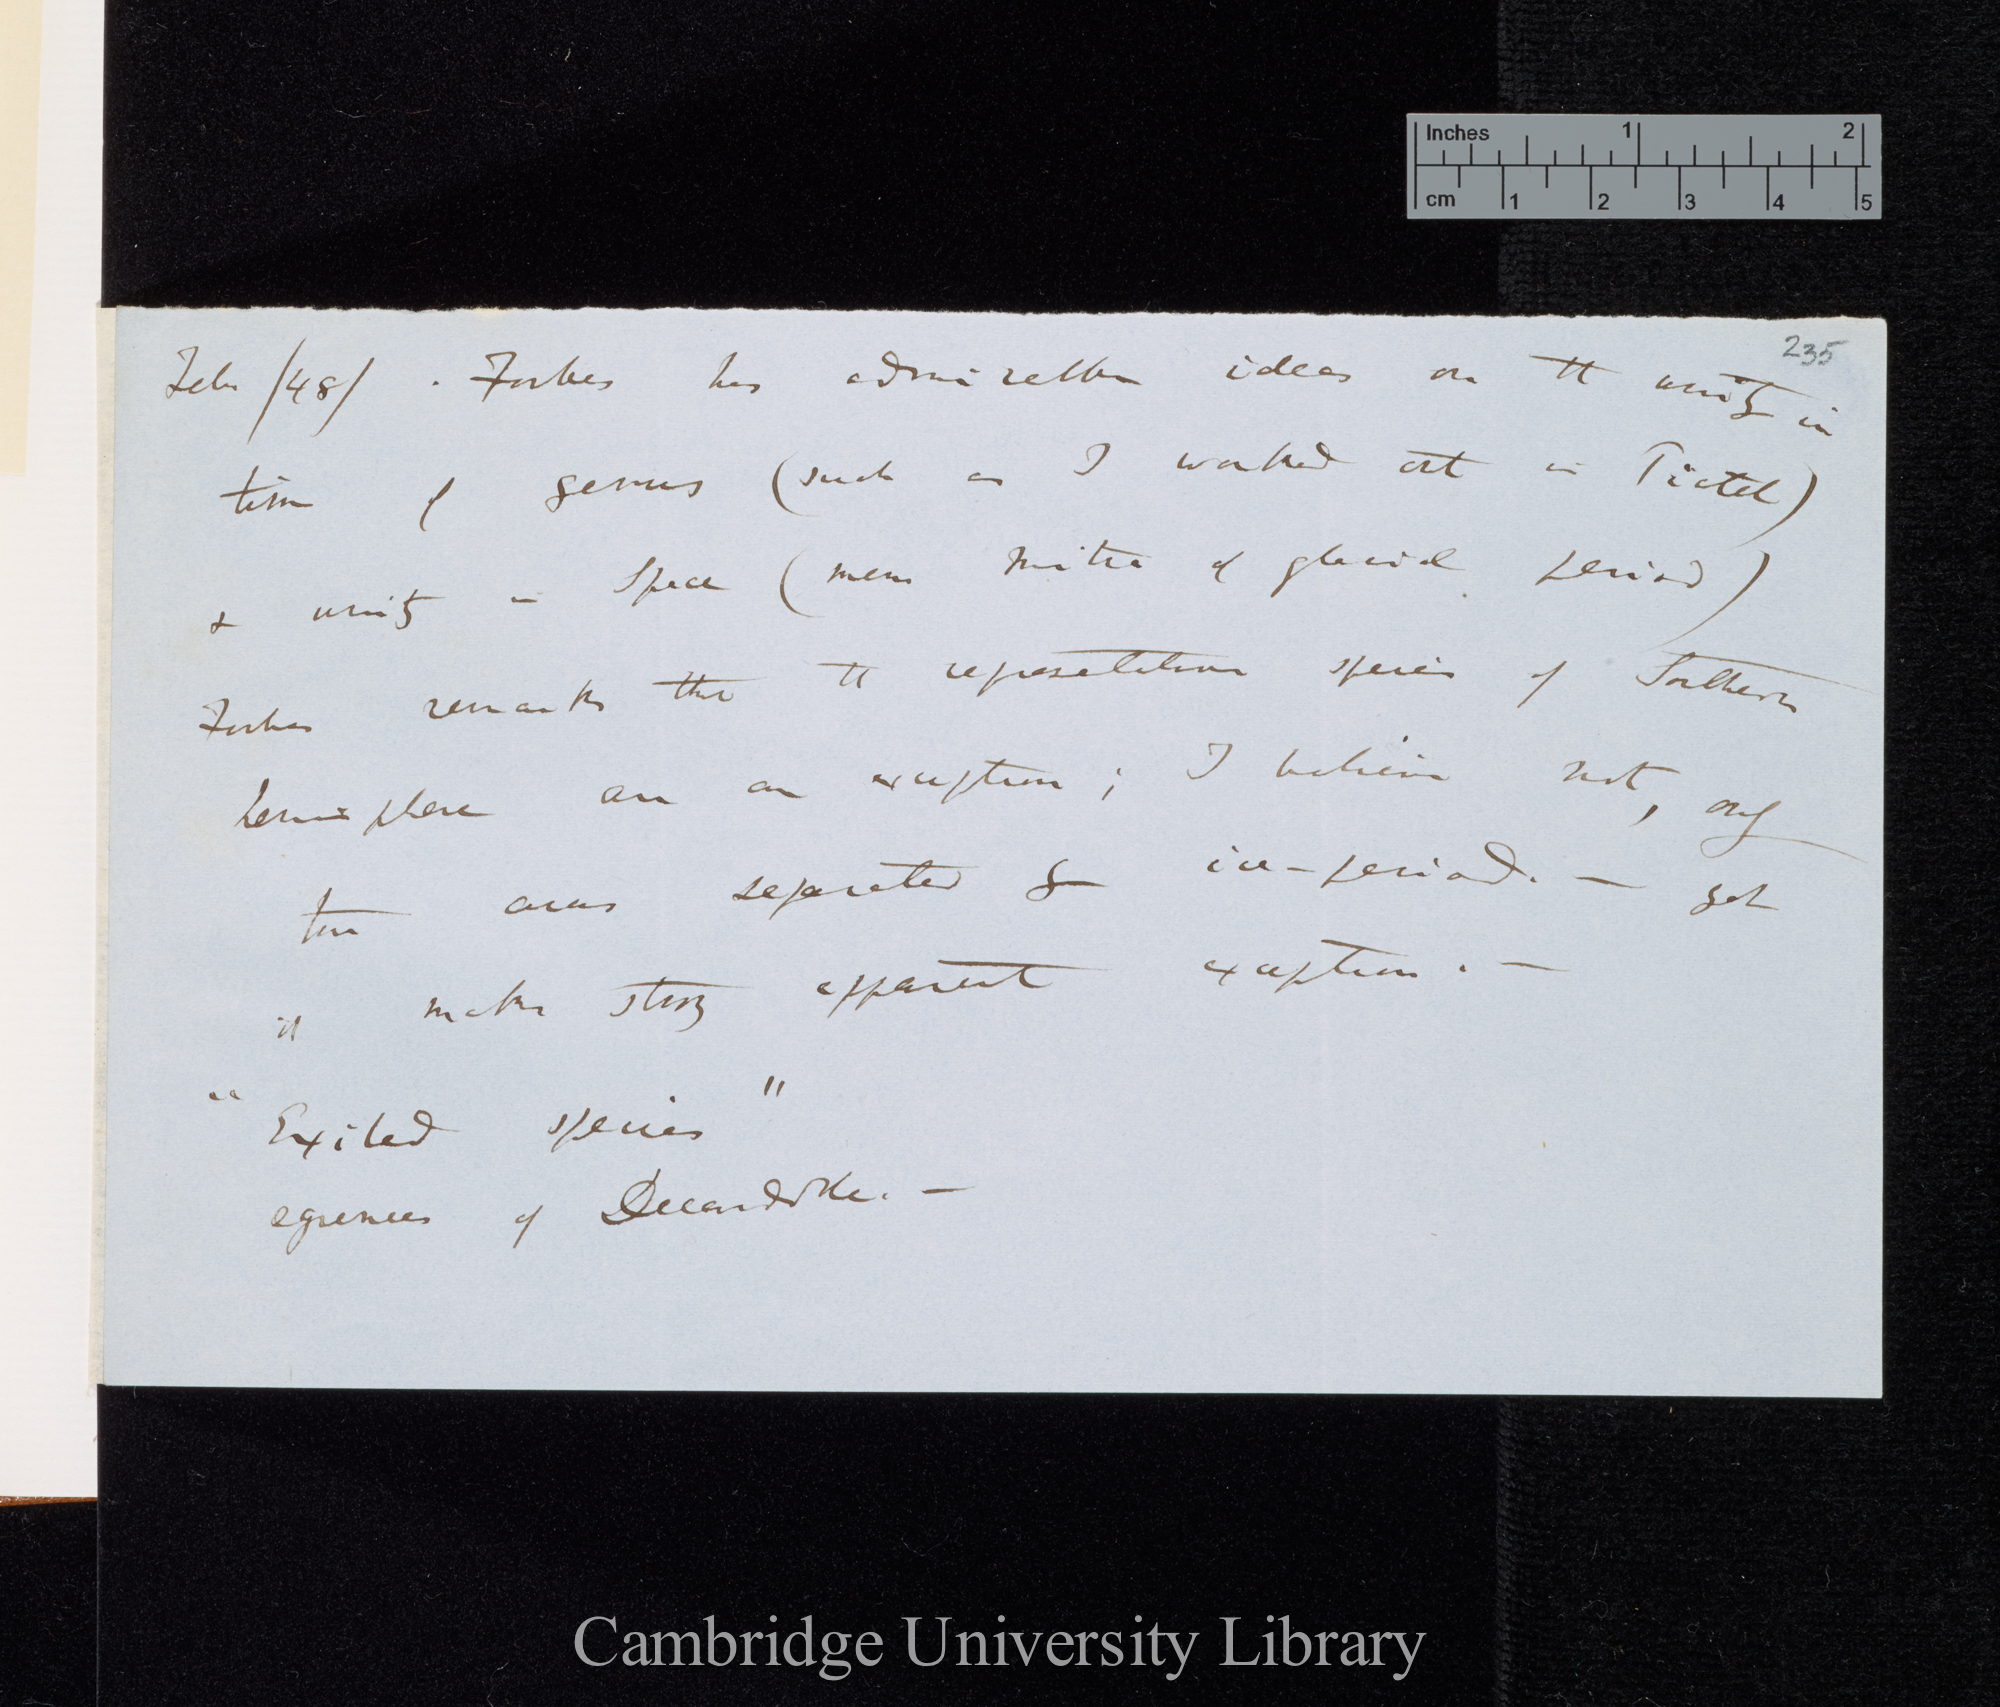 235
Feb /48/. Forbes has admirable ideas on the unity in
time of genus (such as I worked out in Pictet)
& unity in space (mem Mitra of glacial period)
Forbes remarks that the representative species of Southern
hemisphere are an exception; I believe not, only
two areas separated by ice-period. — yet
it makes strong apparent exception. —
"Exiled species"
of Decandolle. —
Inches 1 2
cm 1 2 3 4 5
Cambridge University Library